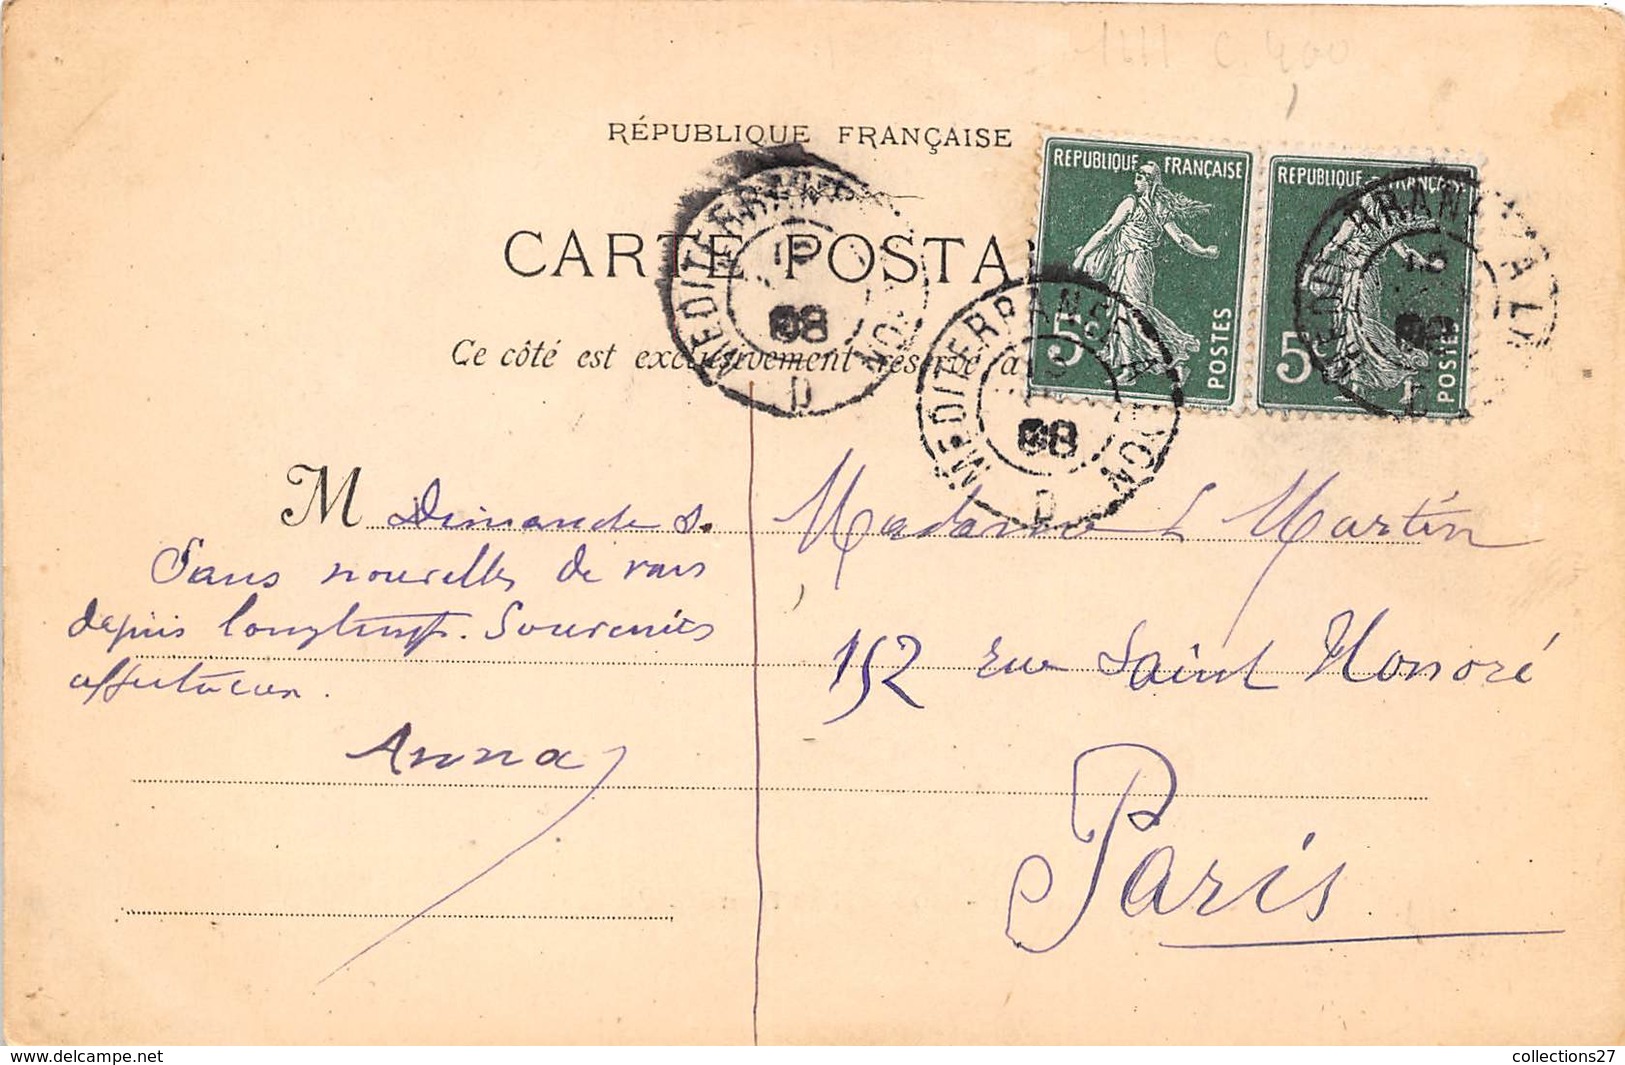 1111 C. 400
RÉPUBLIQUE FRANÇAISE
CARTE POSTA
Ce côté est exclusivement réservé à
REPUBLIQUE FRANÇAISE
5c
POSTES
REPUBLIQUE FRANÇAISE
5c
POSTES
MEDITERRANEE A LYON
08
D
MEDITERRANEE A LYON
08
D
MEDITERRANEE A LYON
M Dimanche s.
Sans nouvelles de vous
depuis longtemps. Souvenirs
affectueux.
Anna
Madame L Martin
152 rue Saint Honoré
Paris
collections27